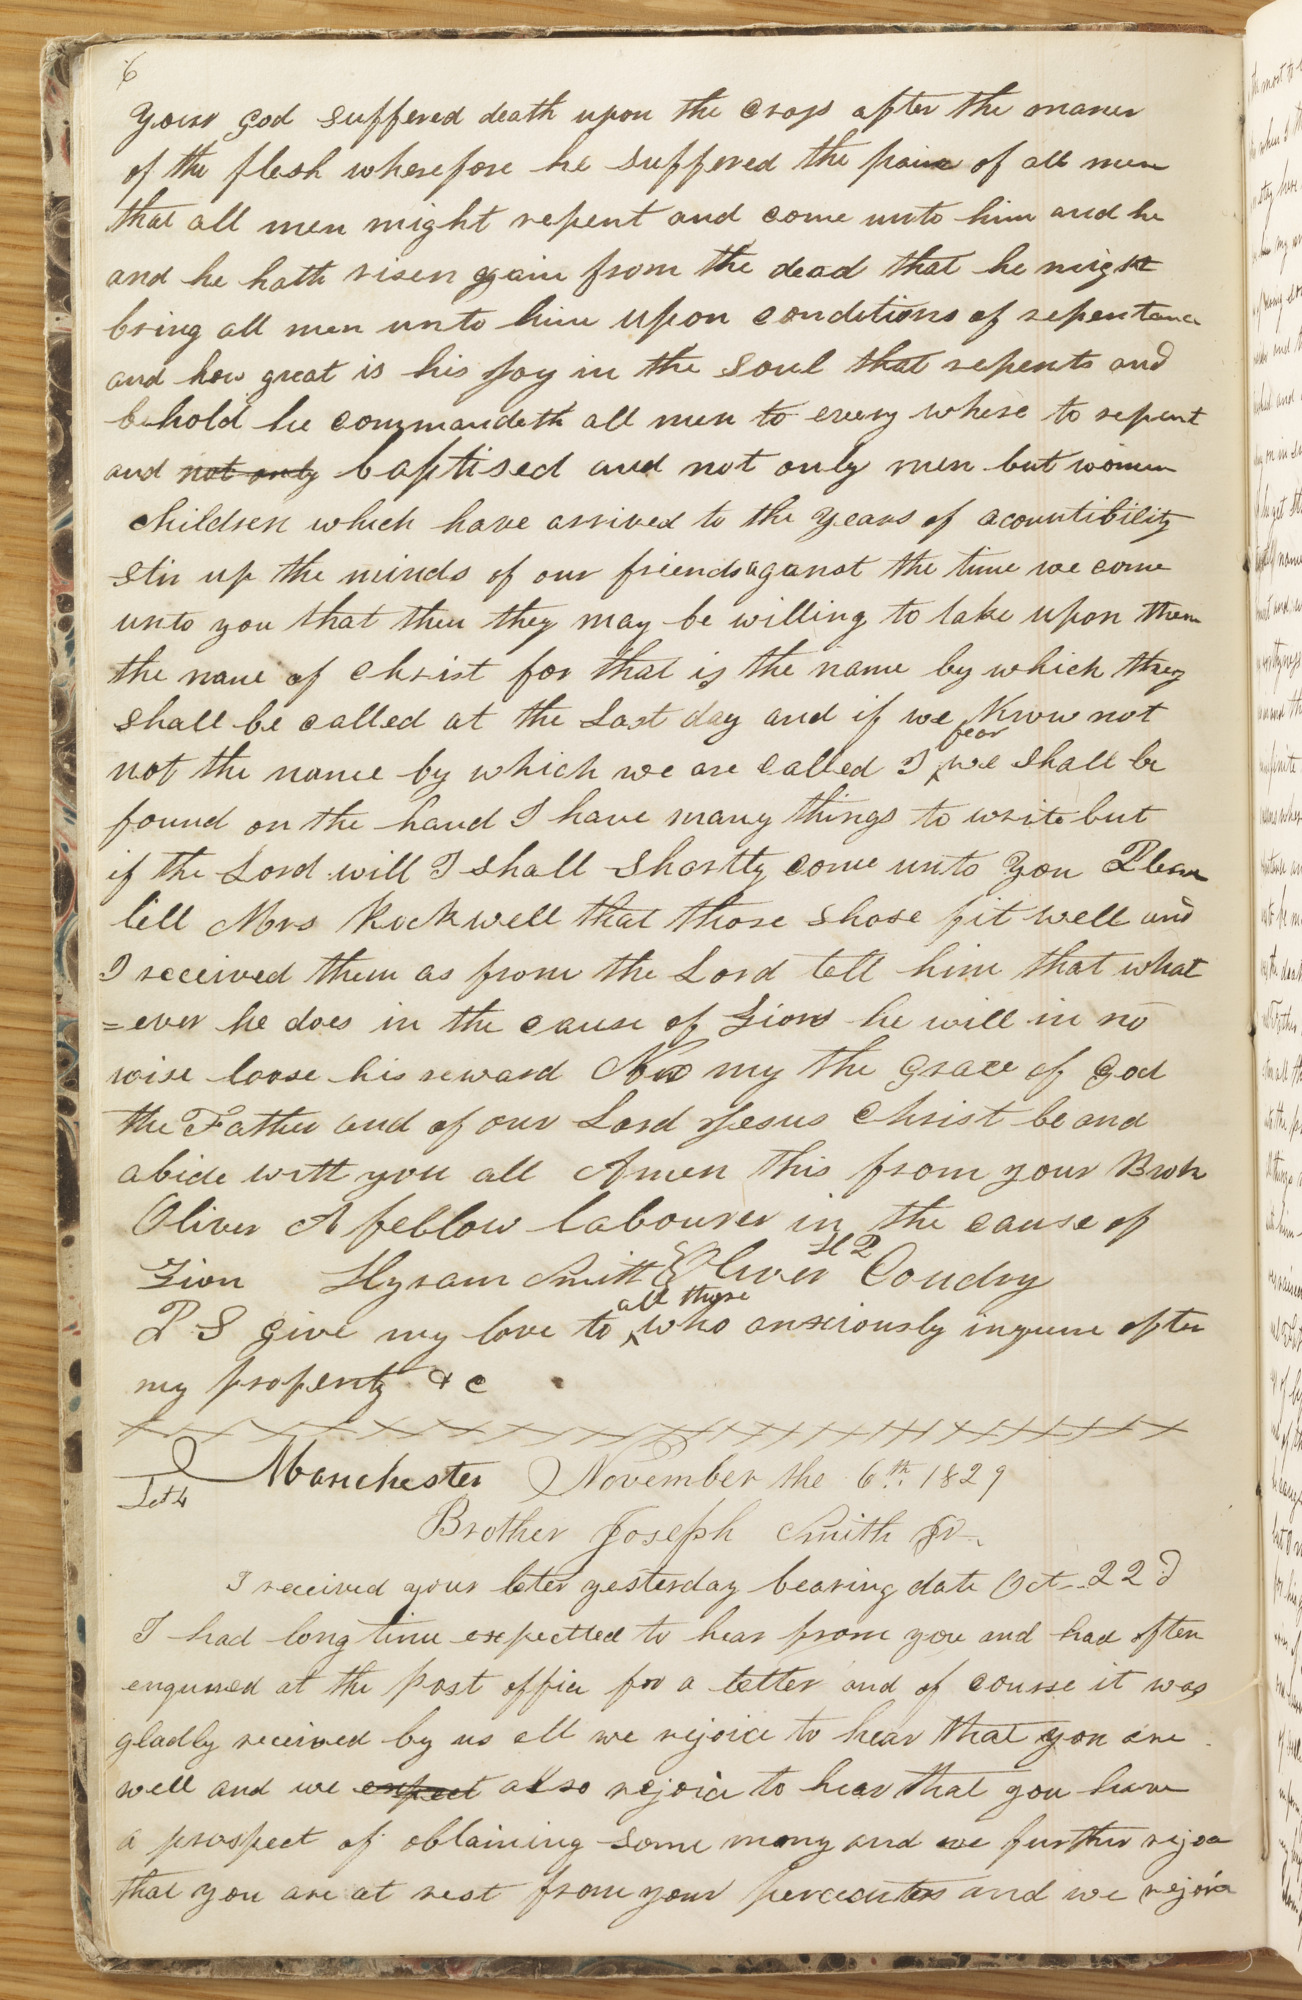 6
your god suffered death upon the cross after the maner
of the flesh wherefore he suffered the pain of all men
that all men might repent and come unto him and he
and he hath risen gain from the dead that he might
bring all men unto him upon conditions of repentance
and how great is his Joy in the Soul that repents and
behold he commandeth all men to every where to repent
and not only baptised and not only men but women
children which have arrived to the years of acountibility
stir up the minds of our friends aganst the time we come
unto you that then they may be willing to take upon them
the name of Christ for that is the name by which they
shall be called at the Last day and if we Know not
not the name by which we are called I fear we shall be
found on the hand I have many things to write but
if the Lord will I shall Shortly come unto you Please
tell Mrs Rockwell that those shose fit well and
I received them as from the Lord tell him that what
=ever he does in the cause of Zion he will in no
wise loose his reward Now my the grace of God
the Father and of our Lord Jesus Christ be and
abide with you all Amen this from your Broth
Oliver A fellow labourer in the cause of
Zion Hyram Smith & Oliver H P Coudry
P S give my love to all those who anxiously inquire after
my property &c
Manchester November the 6th. 1829
Let 4
Brother Joseph Smith Jr.
I received your leter yesterday bearing date Oct 22d
I had long time expectted to hear from you and had often
enquired at the post office for a letter and of course it was
gladly received by us all we rejoice to hear that you are
well and we expect also rejoice to hear that you have
a prospect of obtaining some mony and we further rejoice
that you are at rest from your percecutors and we rejoice